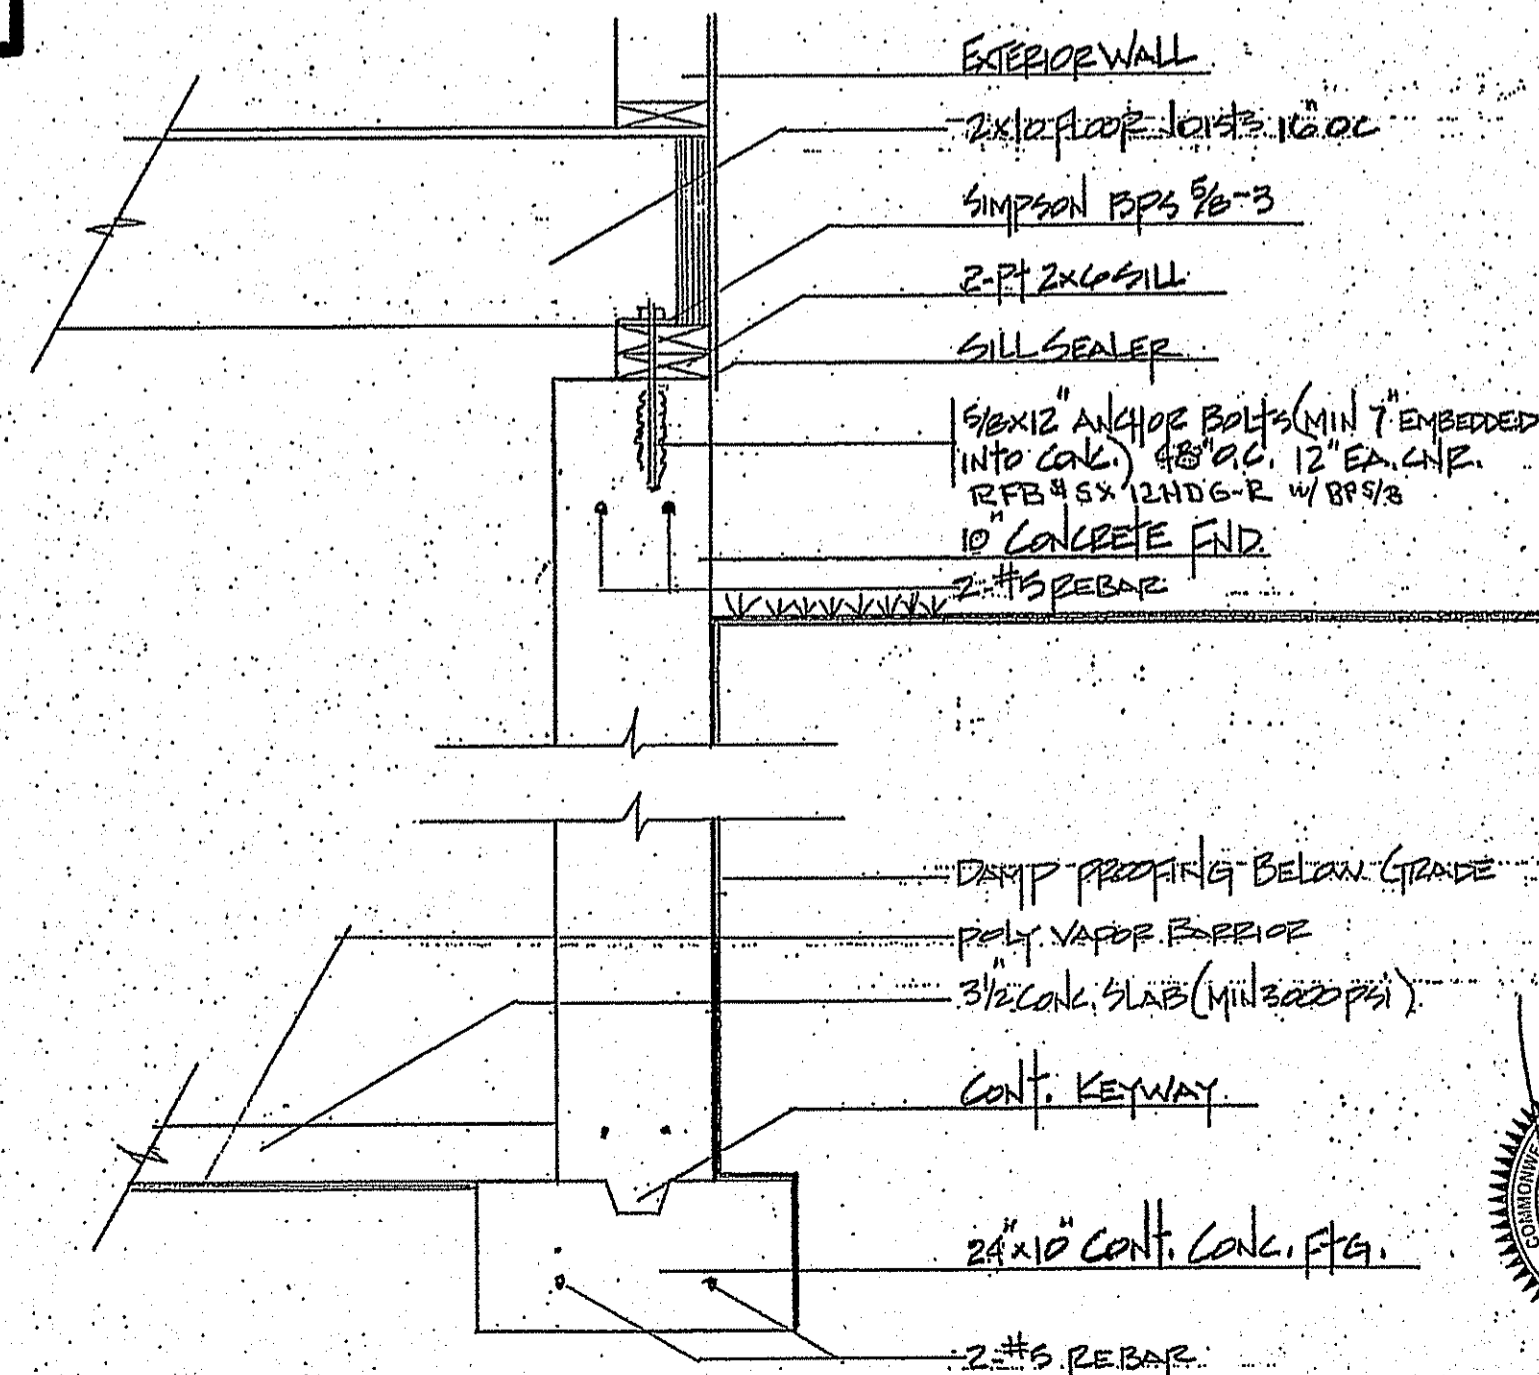 EXTERIOR WALL
2x10 FLOOR JOISTS 16" OC
SIMPSON BPS 5/8-3
2-Pt 2x6 SILL
SILL SEALER
5/8x12" ANCHOR BOLTS (MIN 7" EMBEDDED
INTO CONC.) 48" O.C. 12" EA. CNR.
RFB#5x12HDG-R w/ BP5/8
10" CONCRETE FND.
2-#5 REBAR
DAMP PROOFING BELOW GRADE
POLY VAPOR BARRIOR
3½" CONC. SLAB (MIN 3000 PSI)
CONT. KEYWAY
24"x10" CONT. CONC. FTG.
2-#5 REBAR